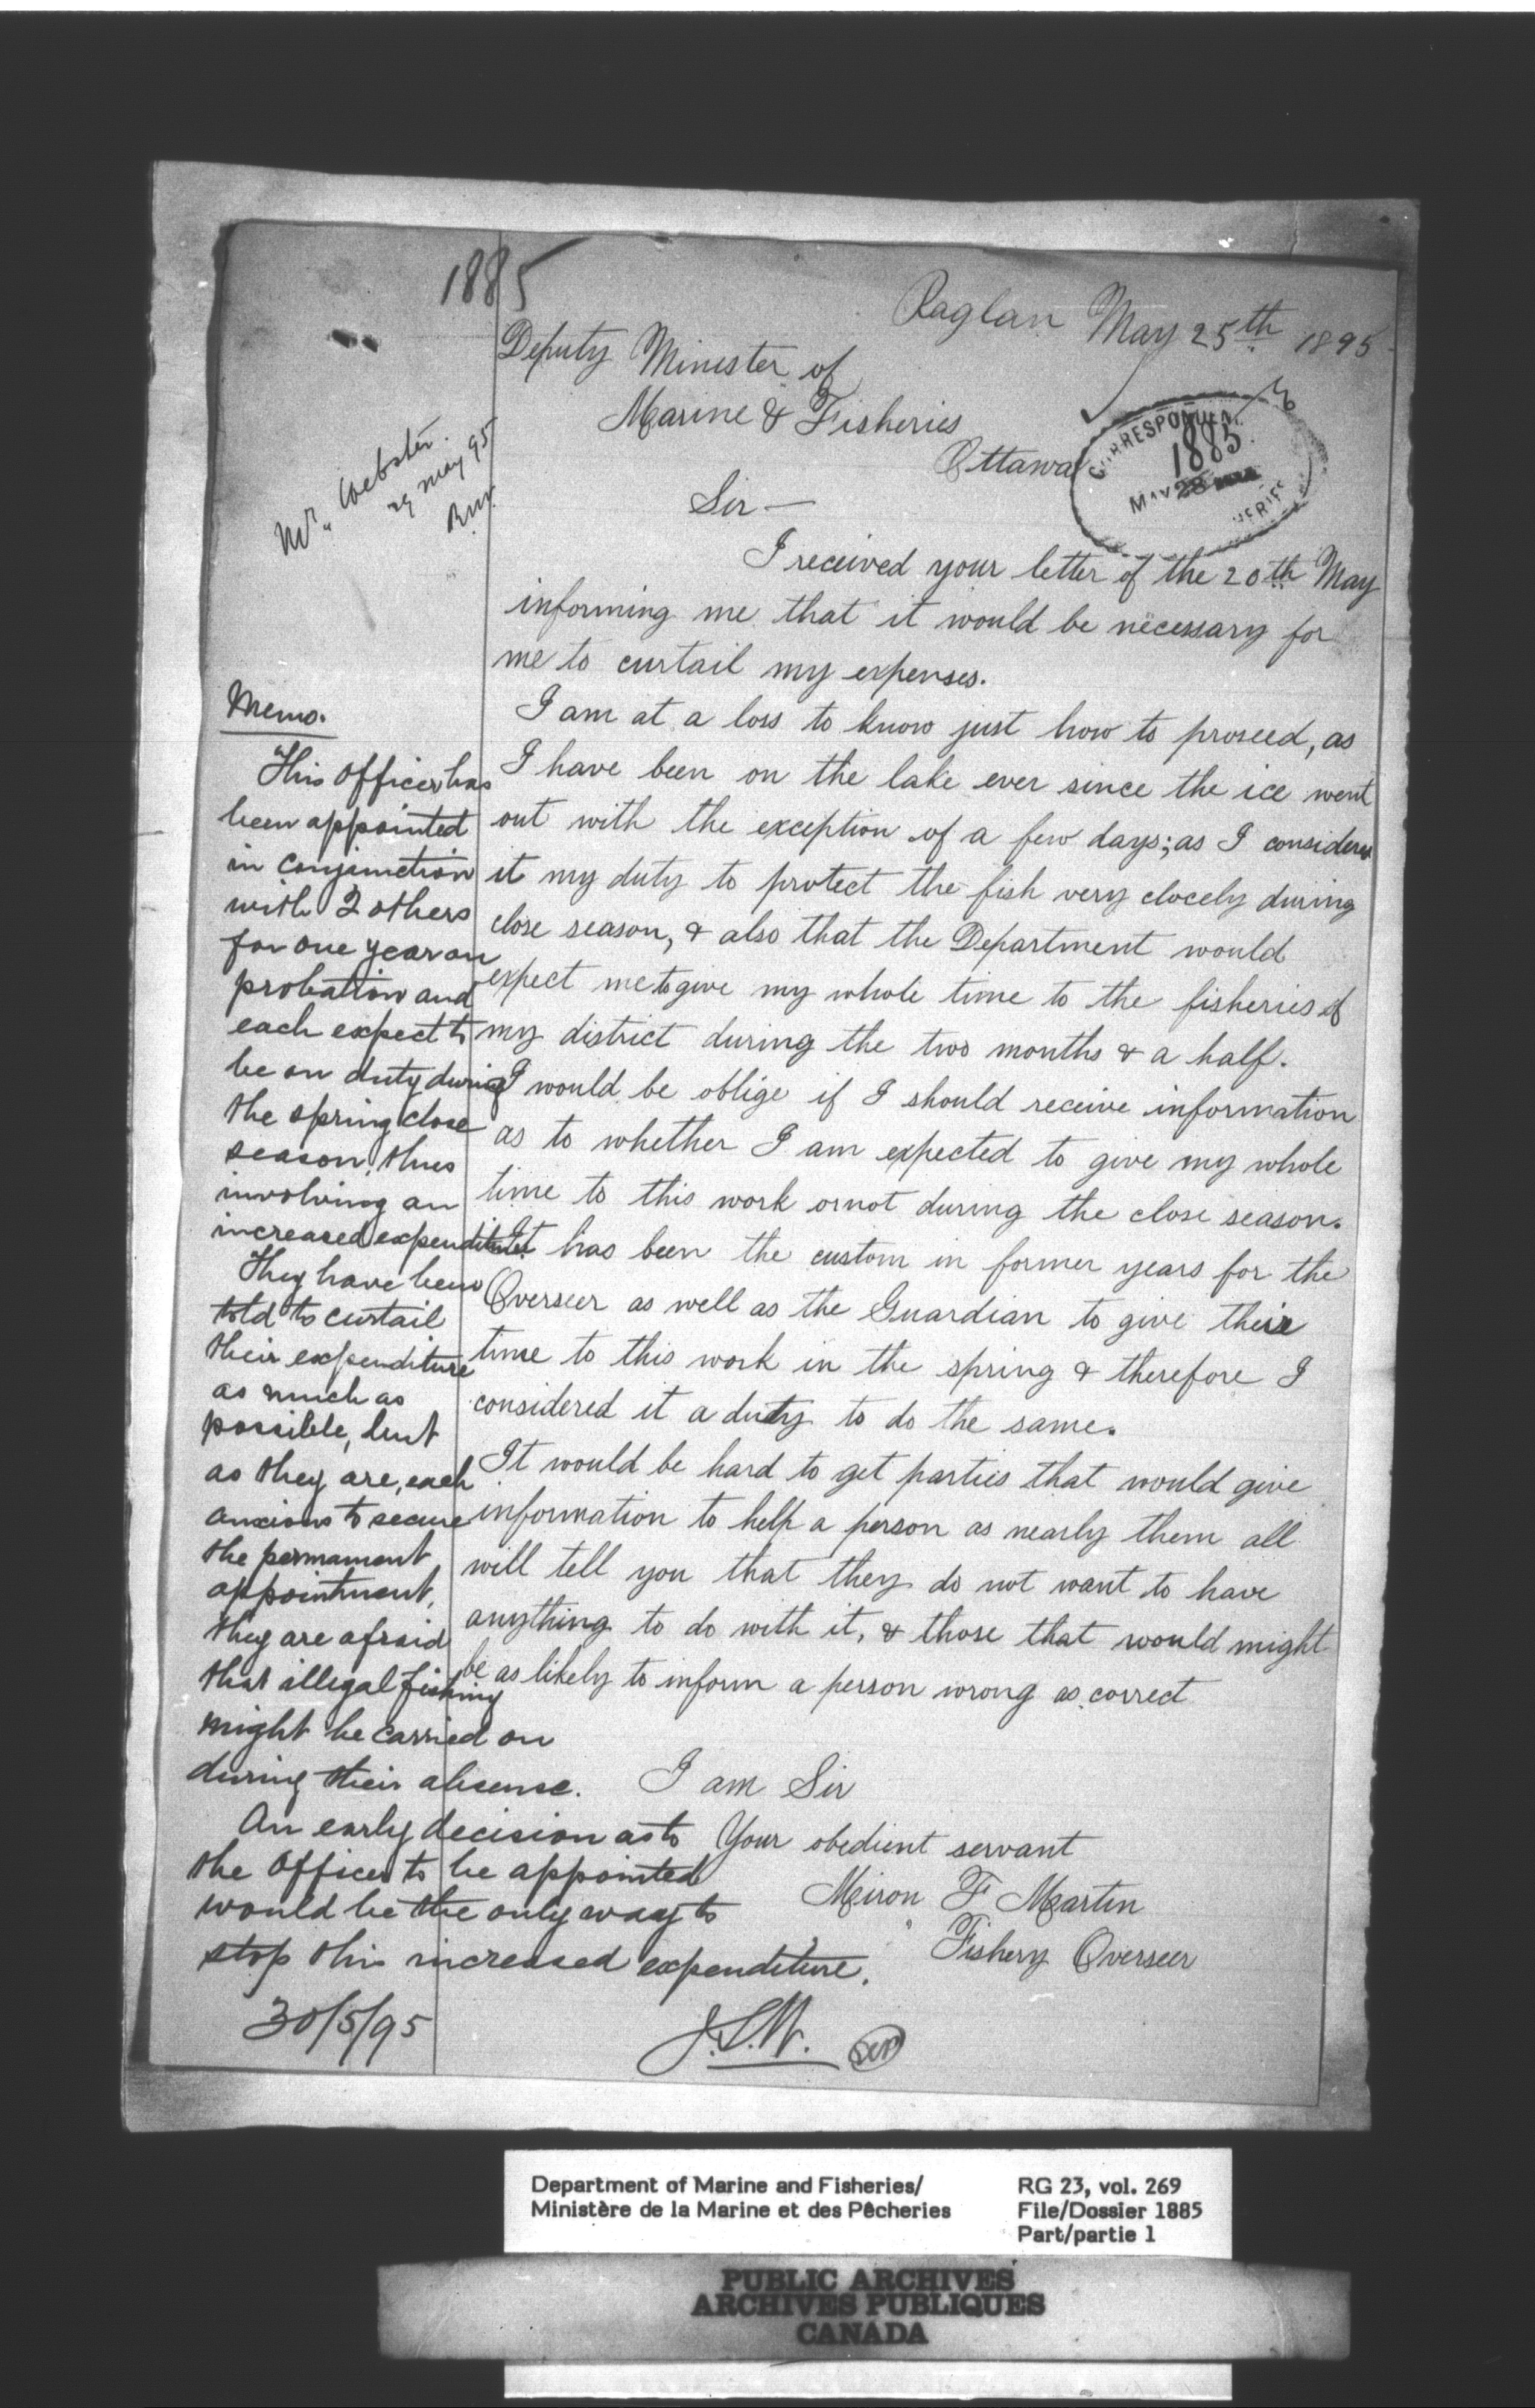 1885
Raglan May 25th 1895
Deputy Minister of
Marine & Fisheries
Ottawa
CORRESPONDEN
1885
MAY 28
Sir —
Mr. Webster
29 May 95
I received your letter of the 20th May
informing me that it would be necessary for
me to curtail my expenses.
I am at a loss to know just how to proseed, as
I have been on the lake ever since the ice went
out with the exception of a few days; as I considered
it my duty to protect the fish very clocely during
close season, & also that the Department would
expect me to give my whole time to the fisheries of
my district during the two months & a half.
I would be oblige if I should receive information
as to whether I am expected to give my whole
time to this work or not during the close season.
It has been the custom in former years for the
Overseer as well as the Guardian to give their
time to this work in the spring & therefore I
considered it a duty to do the same.
It would be hard to get parties that would give
information to help a person as nearly them all
will tell you that they do not want to have
anything to do with it, & those that would might
be as likely to inform a person wrong as correct
I am Sir
Your obedient servant
Miron F Martin
Fishery Overseer
Memo.
This Officer has
been appointed
in conjunction
with 2 others
for one year on
probation and
each expect to
be on duty during
the spring close
season, thus
involving an
increased expenditure.
They have been
told to curtail
their expenditure
as much as
possible, but
as they are, each
anxious to secure
the permament
appointment,
they are afraid
that illegal fishing
might be carried on
during their absense.
An early decision as to
the Officer to be appointed
would be the only way to
stop this increased expenditure.
30/5/95
J.S.W.
Department of Marine and Fisheries/
Ministère de la Marine et des Pêcheries
RG 23, vol. 269
File/Dossier 1885
Part/partie 1
PUBLIC ARCHIVES
ARCHIVES PUBLIQUES
CANADA